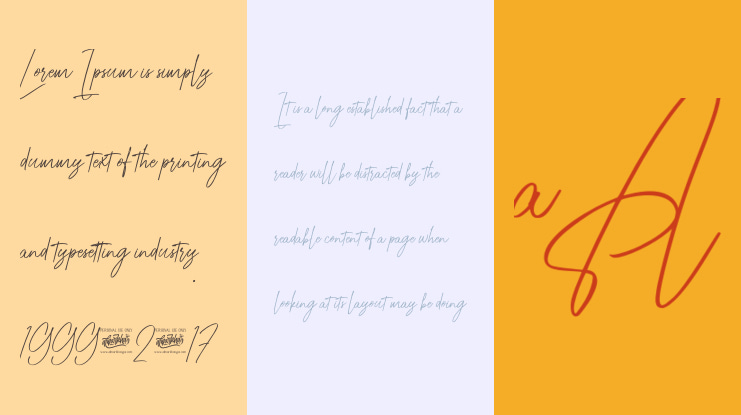 Lorem Ipsum is simply
dummy text of the printing
and typesetting industry
.
1999 2 17
It is a long established fact that a
reader will be distracted by the
readable content of a page when
looking at its layout may be doing
a A